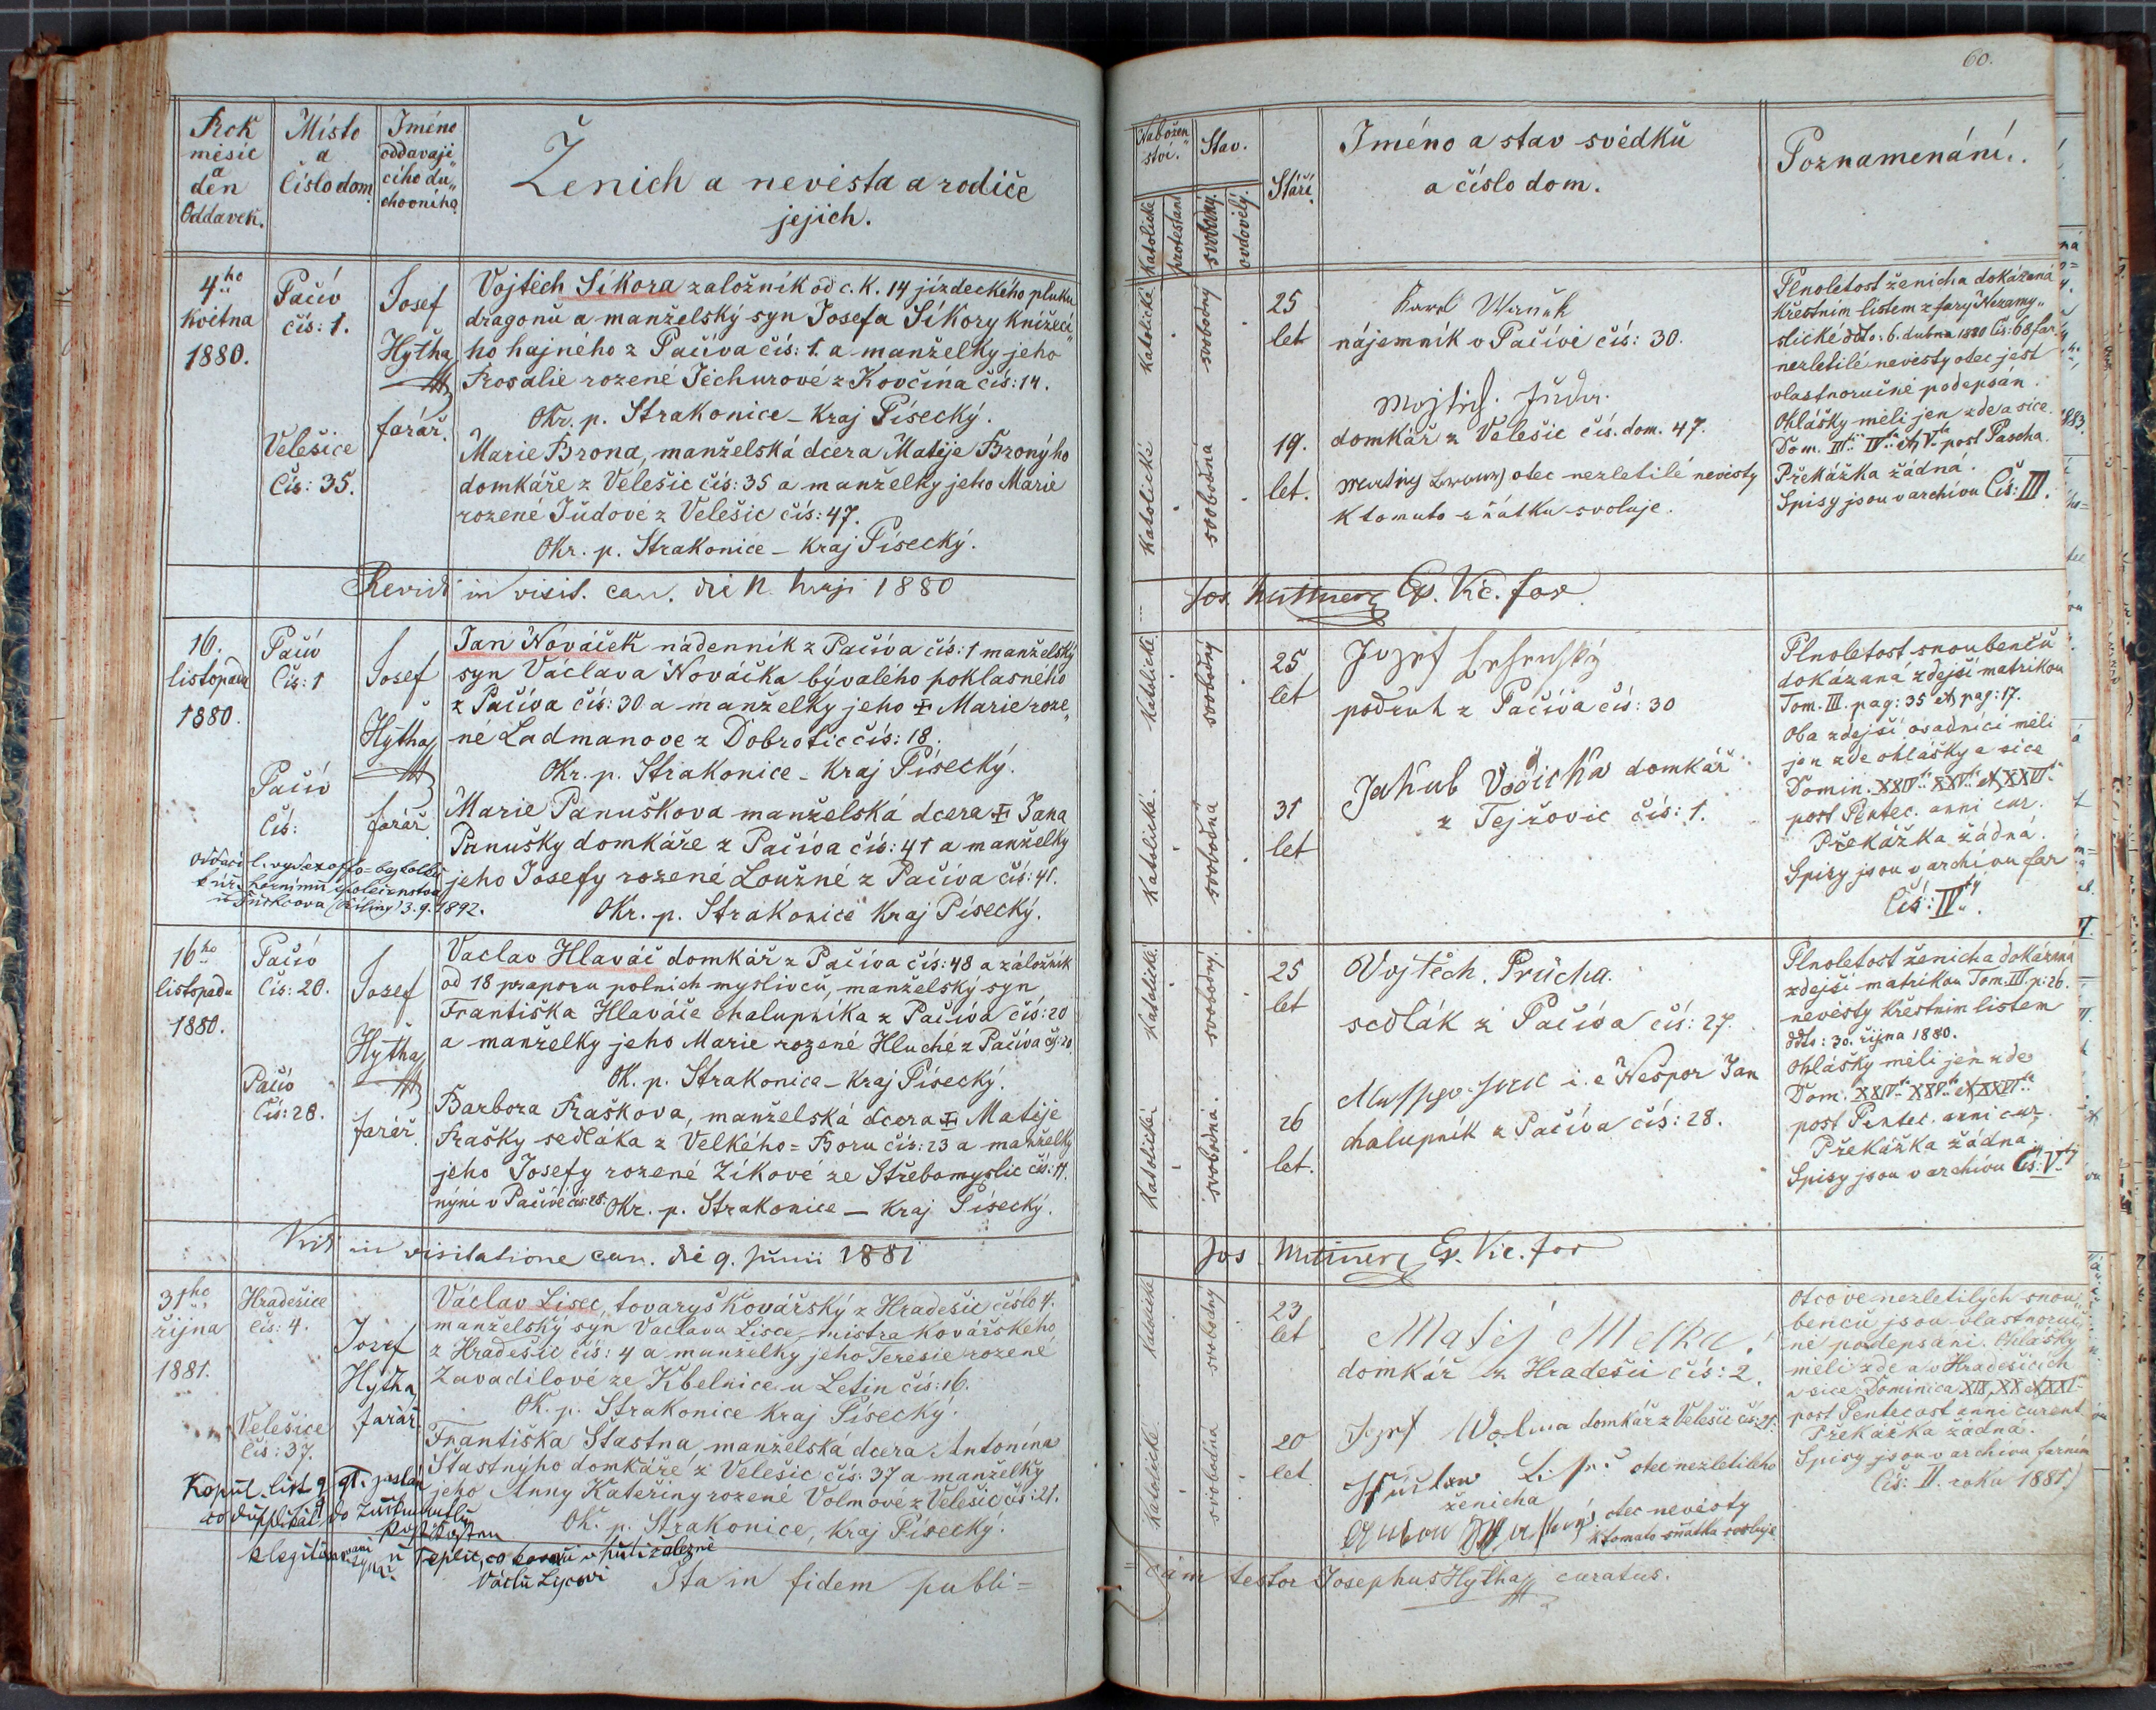 60.
Rok
měsíc
a
den
Oddavek.
Místo
a
Číslo dom.
Jméno
oddavají„
cího du„
chovního.
Ženich a nevěsta a rodiče
jejich.
Nábožen„
ství.
katolické
protestan.
Stav.
svobodný.
ovdovělý.
Stáří.
Jméno a stav svědků
a číslo dom.
Poznamenání.
4ho
května
1880.
Pačiv
čís: 1.
Velešice
Čís: 35.
Josef
Hytha
farář.
Vojtěch Síkora založník od c. k. 14 jízdeckého pluku
dragonů a manželský syn Josefa Síkory knížecí„
ho hajného z Pačiva čís: 1. a manželky jeho
Rosalie rozené Jechurové z Kovčína čís: 14.
Okr. p. Strakonice – Kraj Písecký.
Marie Brona, manželská dcera Matěje Broného
domkáře z Velešic čís: 35 a manželky jeho Marie
rozené Júdové z Velešic čís: 47.
Okr. p. Strakonice – Kraj Písecký.
katolické
svobodný
25
let
nájemník v Pačivě čís: 30.
katolické
svobodná
19.
let.
domkář z Velešic čís. dom. 47.
otec nezletilé nevěsty
k tomuto sňatku svoluje.
Plnoletost ženicha dokázaná
křestním listem z fary Nezamy„
slické ddto: 6. dubna 1880 Čís: 68 far.
nezletilé nevěsty otec jest
vlastnoručně podepsán.
Ohlášky měli jen zde a sice
Dom. III. IV. et V. post Pascha.
Překážka žádná.
Spisy jsou v archivu Čís: III.
in visit. can. die 11. Maji 1880
Jos. Ep. Vic. for
16.
listopadu
1880.
Pačiv
Čís: 1
Pačiv
Čís:
Josef
Hytha
farář
Jan Nováček nádenník z Pačiva čís: 1 manželský
syn Václava Nováčka bývalého poklasného
z Pačiva čís: 30 a manželky jeho ☩ Marie roze„
né Ladmanové z Dobrotic čís: 18.
Okr. p. Strakonice – Kraj Písecký.
Marie Panuškova manželská dcera ☩ Jana
Panušky domkáře z Pačiva čís: 41 a manželky
jeho Josefy rozené Loužné z Pačiva čís: 41.
Okr. p. Strakonice Kraj Písecký.
3. 9. 1892.
katolické
svobodný
25
let
Jozef
podruh z Pačiva čís: 30
katolické
svobodná
31
let
Jakub Vodička domkář
z Tejžovic čís: 1.
Plnoletost snoubenců
dokázaná zdejší matrikou
Tom. III. pag: 35 et pag: 17.
Oba zdejší osadníci měli
jen zde ohlášky a sice
Domin. XXIV. XXV. et XXVI.
post Pentec. anni cur.
Překážka žádná.
Spisy jsou v archivu far
Čís: IV.
16ho
listopadu
1880.
Pačiv
Čís: 20.
Pačiv
Čís: 28.
Josef
Hytha
farář.
Vaclav Hlaváč domkář z Pačiva čís: 48 a záložník
od 18 praporu polních myslivců, manželský syn
Františka Hlaváče chalupníka z Pačiva čís: 20
a manželky jeho Marie rozené Hluché z Pačiva čís: 20.
Ok. p. Strakonice – Kraj Písecký.
Barbora Praškova, manželská dcera ☩ Matěje
Prašky sedláka z Velkého = Boru čís: 23 a manželky
jeho Josefy rozené Zíkové ze Střebomyslic čís: 11.
nýni v Pačivě čís: 28. Okr. p. Strakonice — Kraj Písecký.
katolické
svobodný
25
let
Vojtěch Průcha.
sedlák z Pačiva čís: 27.
katolické
svobodná.
26
let.
i. e Nešpor Jan
chalupník z Pačiva čís: 28.
Plnoletost ženicha dokázaná
zdejší matrikou Tom. III. p: 26.
nevěsty křestním listem
ddto: 30. října 1880.
Ohlášky měli jen zde
Dom. XXIV. XXV. et XXVI.
post Pentec. anni cur.
Překážka žádna.
Spisy jsou v archivu Čís: V.
in visitatione can. die 9. Junii 1881
Jos Ep. Vic. for
31ho
října
1881.
Hradešice
čís: 4.
Velešice
Čís: 37.
Josef
Hytha
farář.
Václav Lisec, tovaryš kovářský z Hradešic číslo 4.
manželský syn Vaclava Lisce, mistra kovářského
z Hradešic čís: 4 a manželky jeho Teresie rozené
Zavadilové ze Kbelnice u Letin čís: 16.
Ok. p. Strakonice Kraj Písecký.
Františka Štastna, manželská dcera Antonína
Štastnýho domkáře z Velešic čís: 37 a manželky
jeho Anny Kateřiny rozené Volmové z Velešic čís: 21.
Ok. p. Strakonice, Kraj Písecký.
Kopul. list
katolické
svobodný
23
let
Matěj Melka.
domkář z Hradešic čís: 2.
katolické
svobodná
20
let
Jozef Wolma domkář z Velešic čís: 21.
otec nezletilého
ženicha
otec nevěsty
k tomuto sňatku svoluje
Otcové nezletilých snou„
benců jsou vlastnoruč„
ně podepsáni. Ohlášky
měli zde a v Hradešicích
a sice Dominica XIX, XX et XXI.
post Pentecost anni curent
Překážka žádná.
Spisy jsou v archivu farním
Čís: II. roku 1881.
Ita in fidem publi=
cam testor Josephus Hytha curatus.